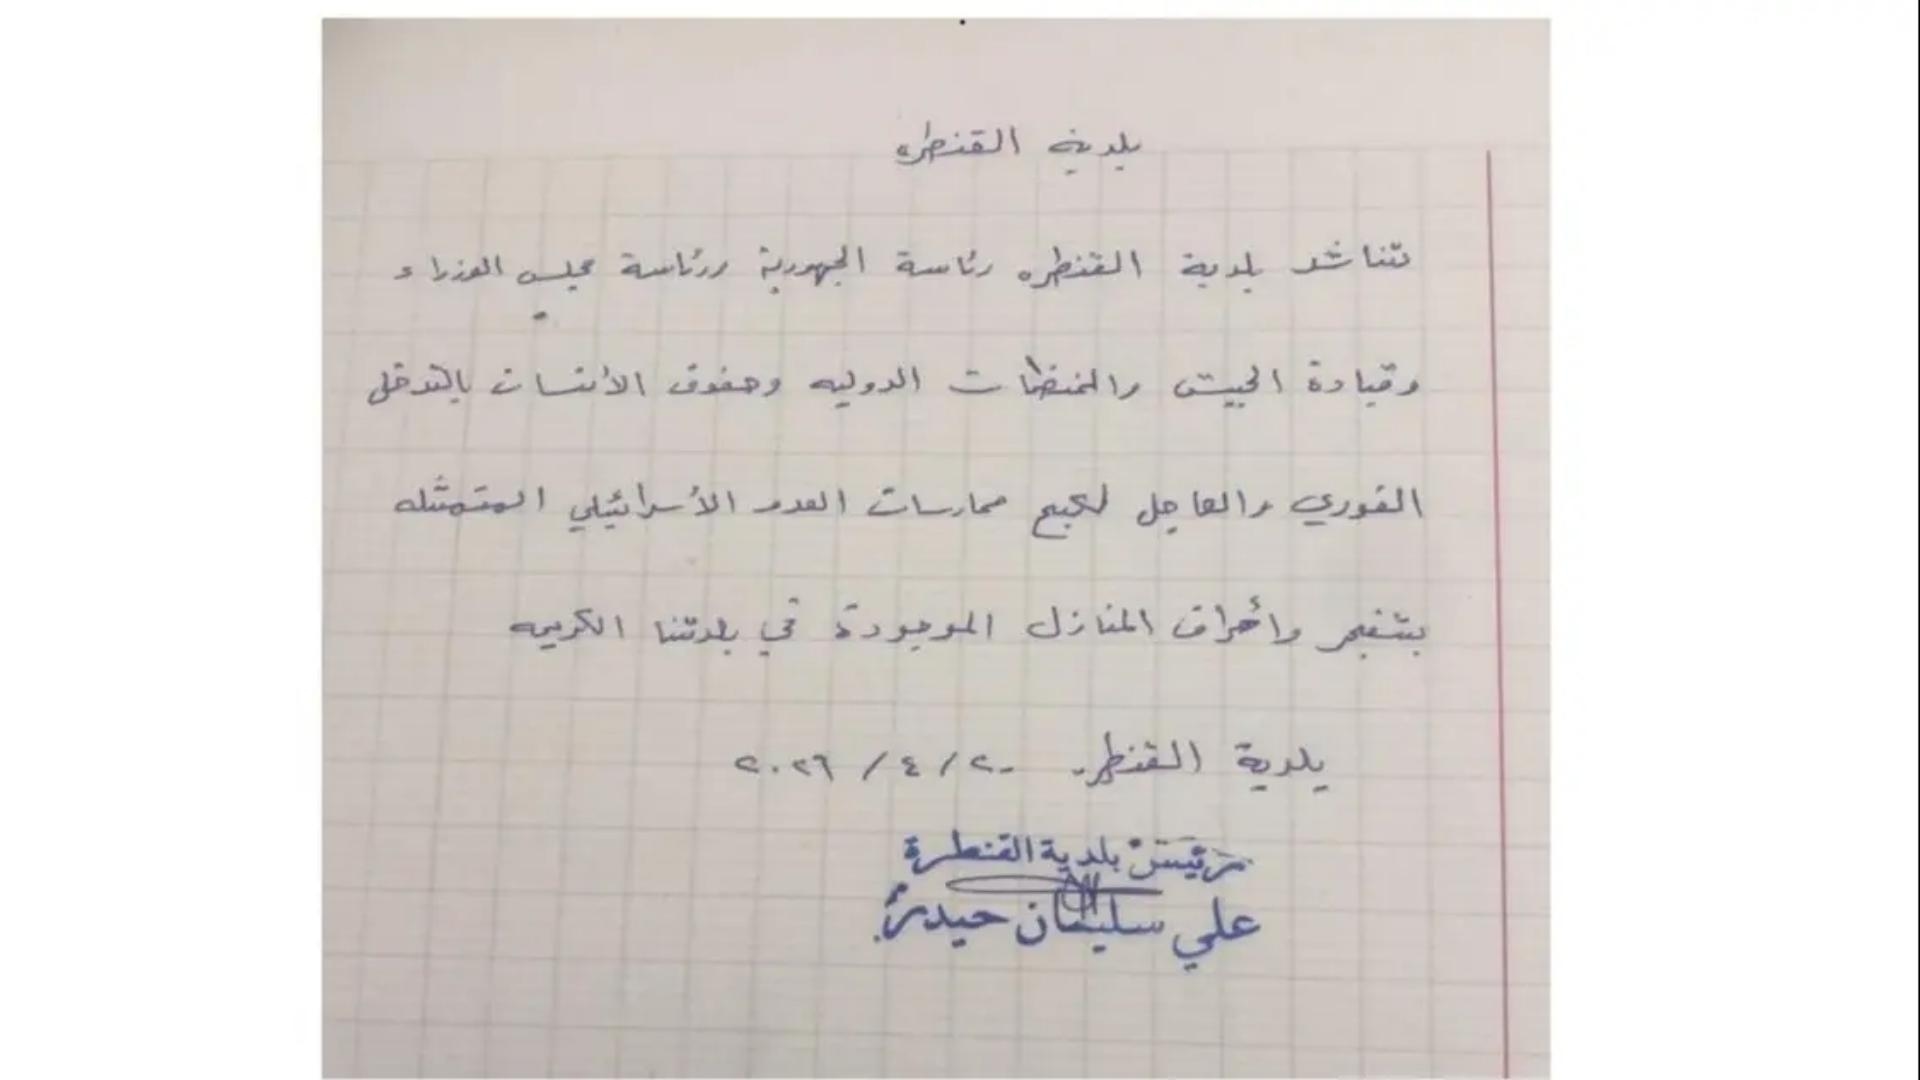 بلدية القنطره
تناشد بلدية القنطره رئاسة الجمهورية ورئاسة مجلس الوزراء
وقيادة الجيش والمنظمات الدوليه وحقوق الأنسان بالتدخل
الفوري والعاجل لكبح ممارسات العدو الأسرائيلي المتمثله
بتفجير وأحراق المنازل الموجودة في بلدتنا الكريمه
بلدية القنطره ٢٠ / ٤ / ٢٠٢٦
رئيس بلدية القنطرة
علي سليمان حيدر